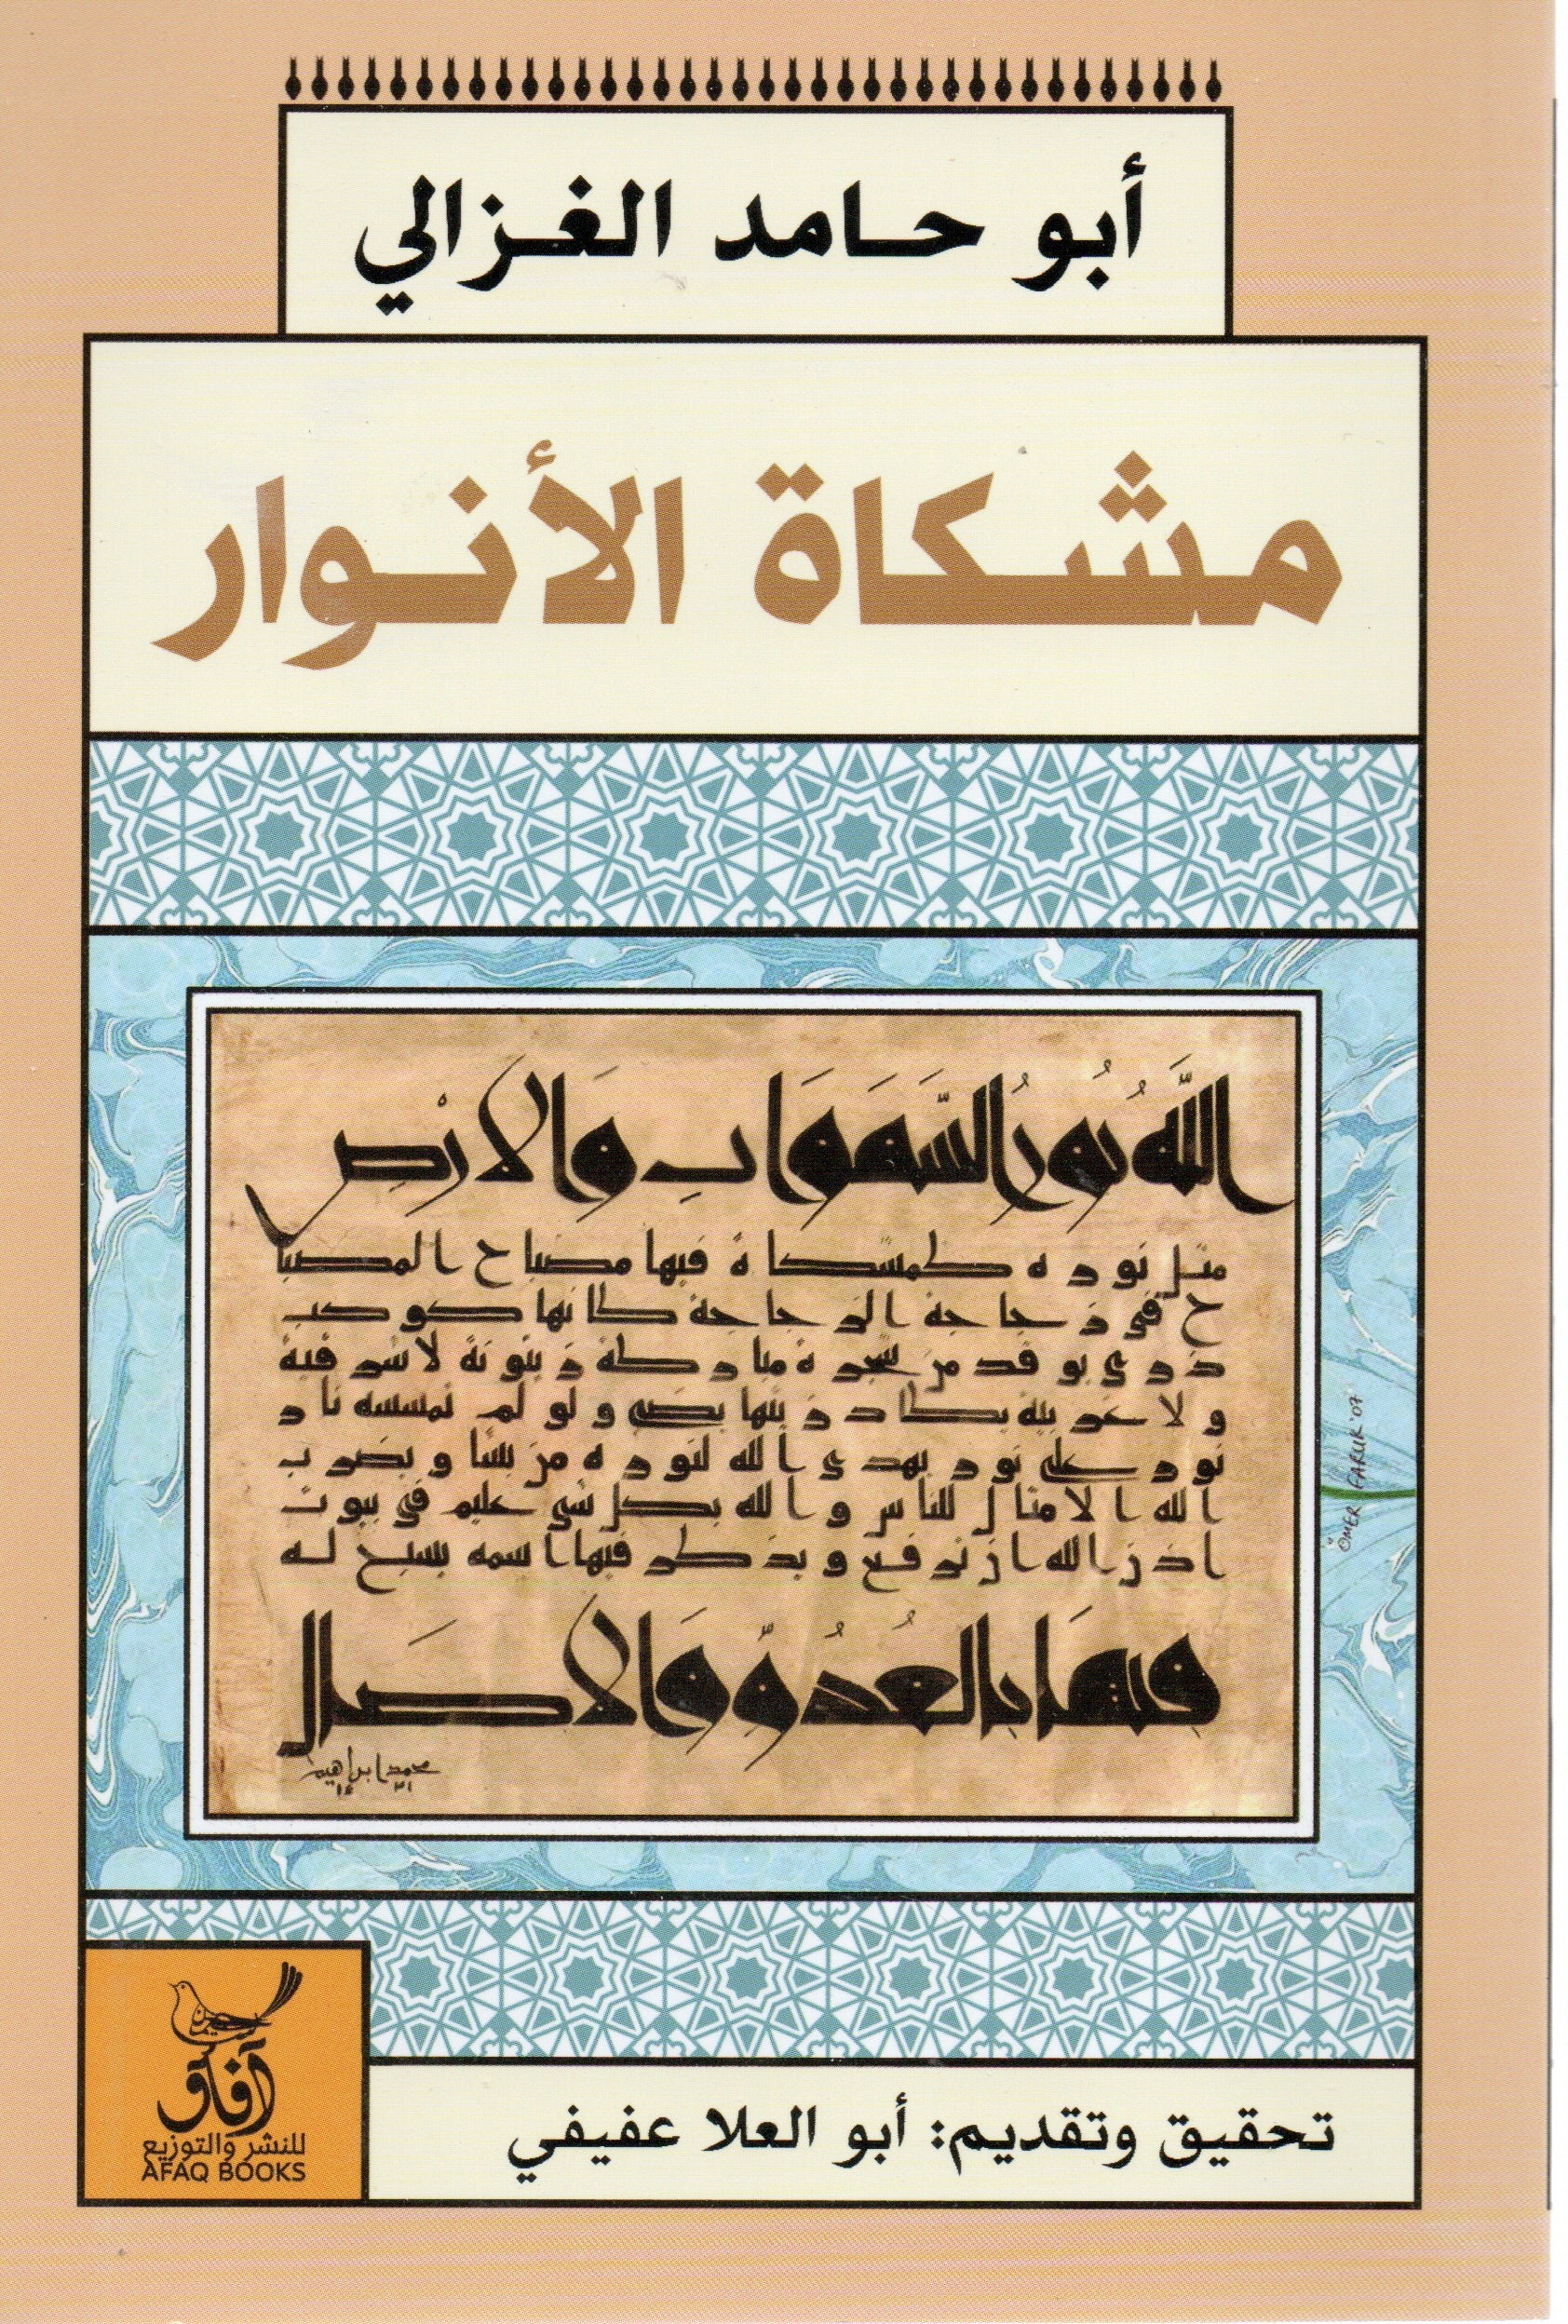 أبو حامد الغزالي
مشكاة الأنوار
اللَّهُ نُورُ السَّمَوَاتِ وَالأرْضِ
مثل نوره كمشكاة فيها مصباح المصبا
ح في زجاجة الزجاجة كأنها كوكب
دري يوقد من شجرة مباركة زيتونة لا شرقية
ولا غربية يكاد زيتها يضيء ولو لم تمسسه نار
نور على نور يهدي الله لنوره من يشا ويضرب
الله الأمثال للناس والله بكل شي عليم في بيوت
اذن الله ان ترفع ويذكر فيها اسمه يسبح له
فيهَا بِالغُدُوِّ وَالاصَال
محمد ابراهيم
ÖMER FARUK '07
آفاق
للنشر والتوزيع
AFAQ BOOKS
تحقيق وتقديم: أبو العلا عفيفي